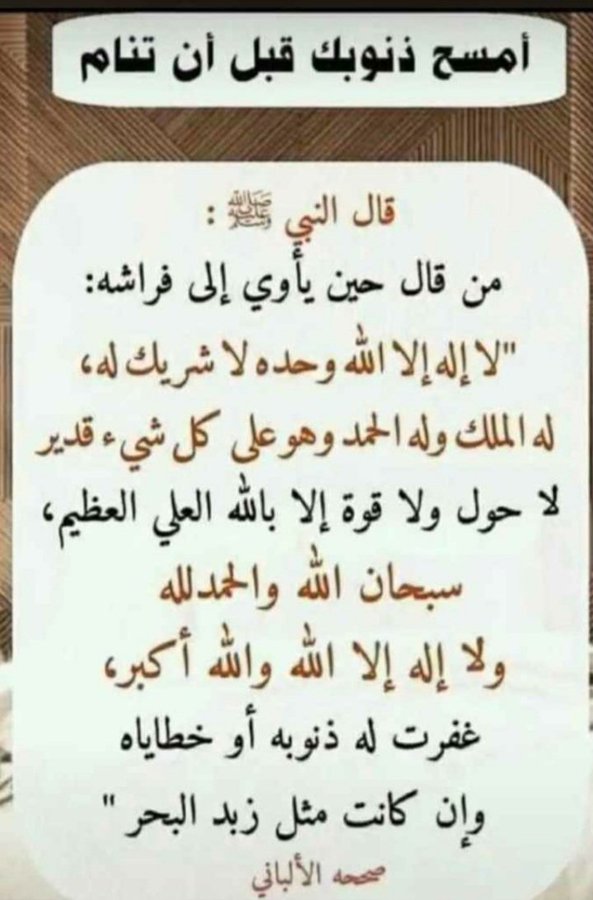 أمسح ذنوبك قبل أن تنام
قال النبي ﷺ :
من قال حين يأوي إلى فراشه:
"لا إله إلا الله وحده لا شريك له،
له الملك وله الحمد وهو على كل شيء قدير
لا حول ولا قوة إلا بالله العلي العظيم،
سبحان الله والحمدلله
ولا إله إلا الله والله أكبر،
غفرت له ذنوبه أو خطاياه
وإن كانت مثل زبد البحر "
صححه الألباني